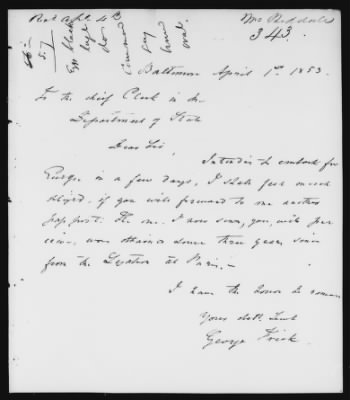 343.
Baltimore April 1st 1853.
To the chief Clerk in the
Department of State
Dear Sir,
Intending to embark for
Europe in a few days, I shall feel much
obliged, if you will forward to me another
passport. The one I now send, you will per
ceive, was obtained some three years since
from the Legation at Paris,
I have the honor to remain
Yours
George Frick.